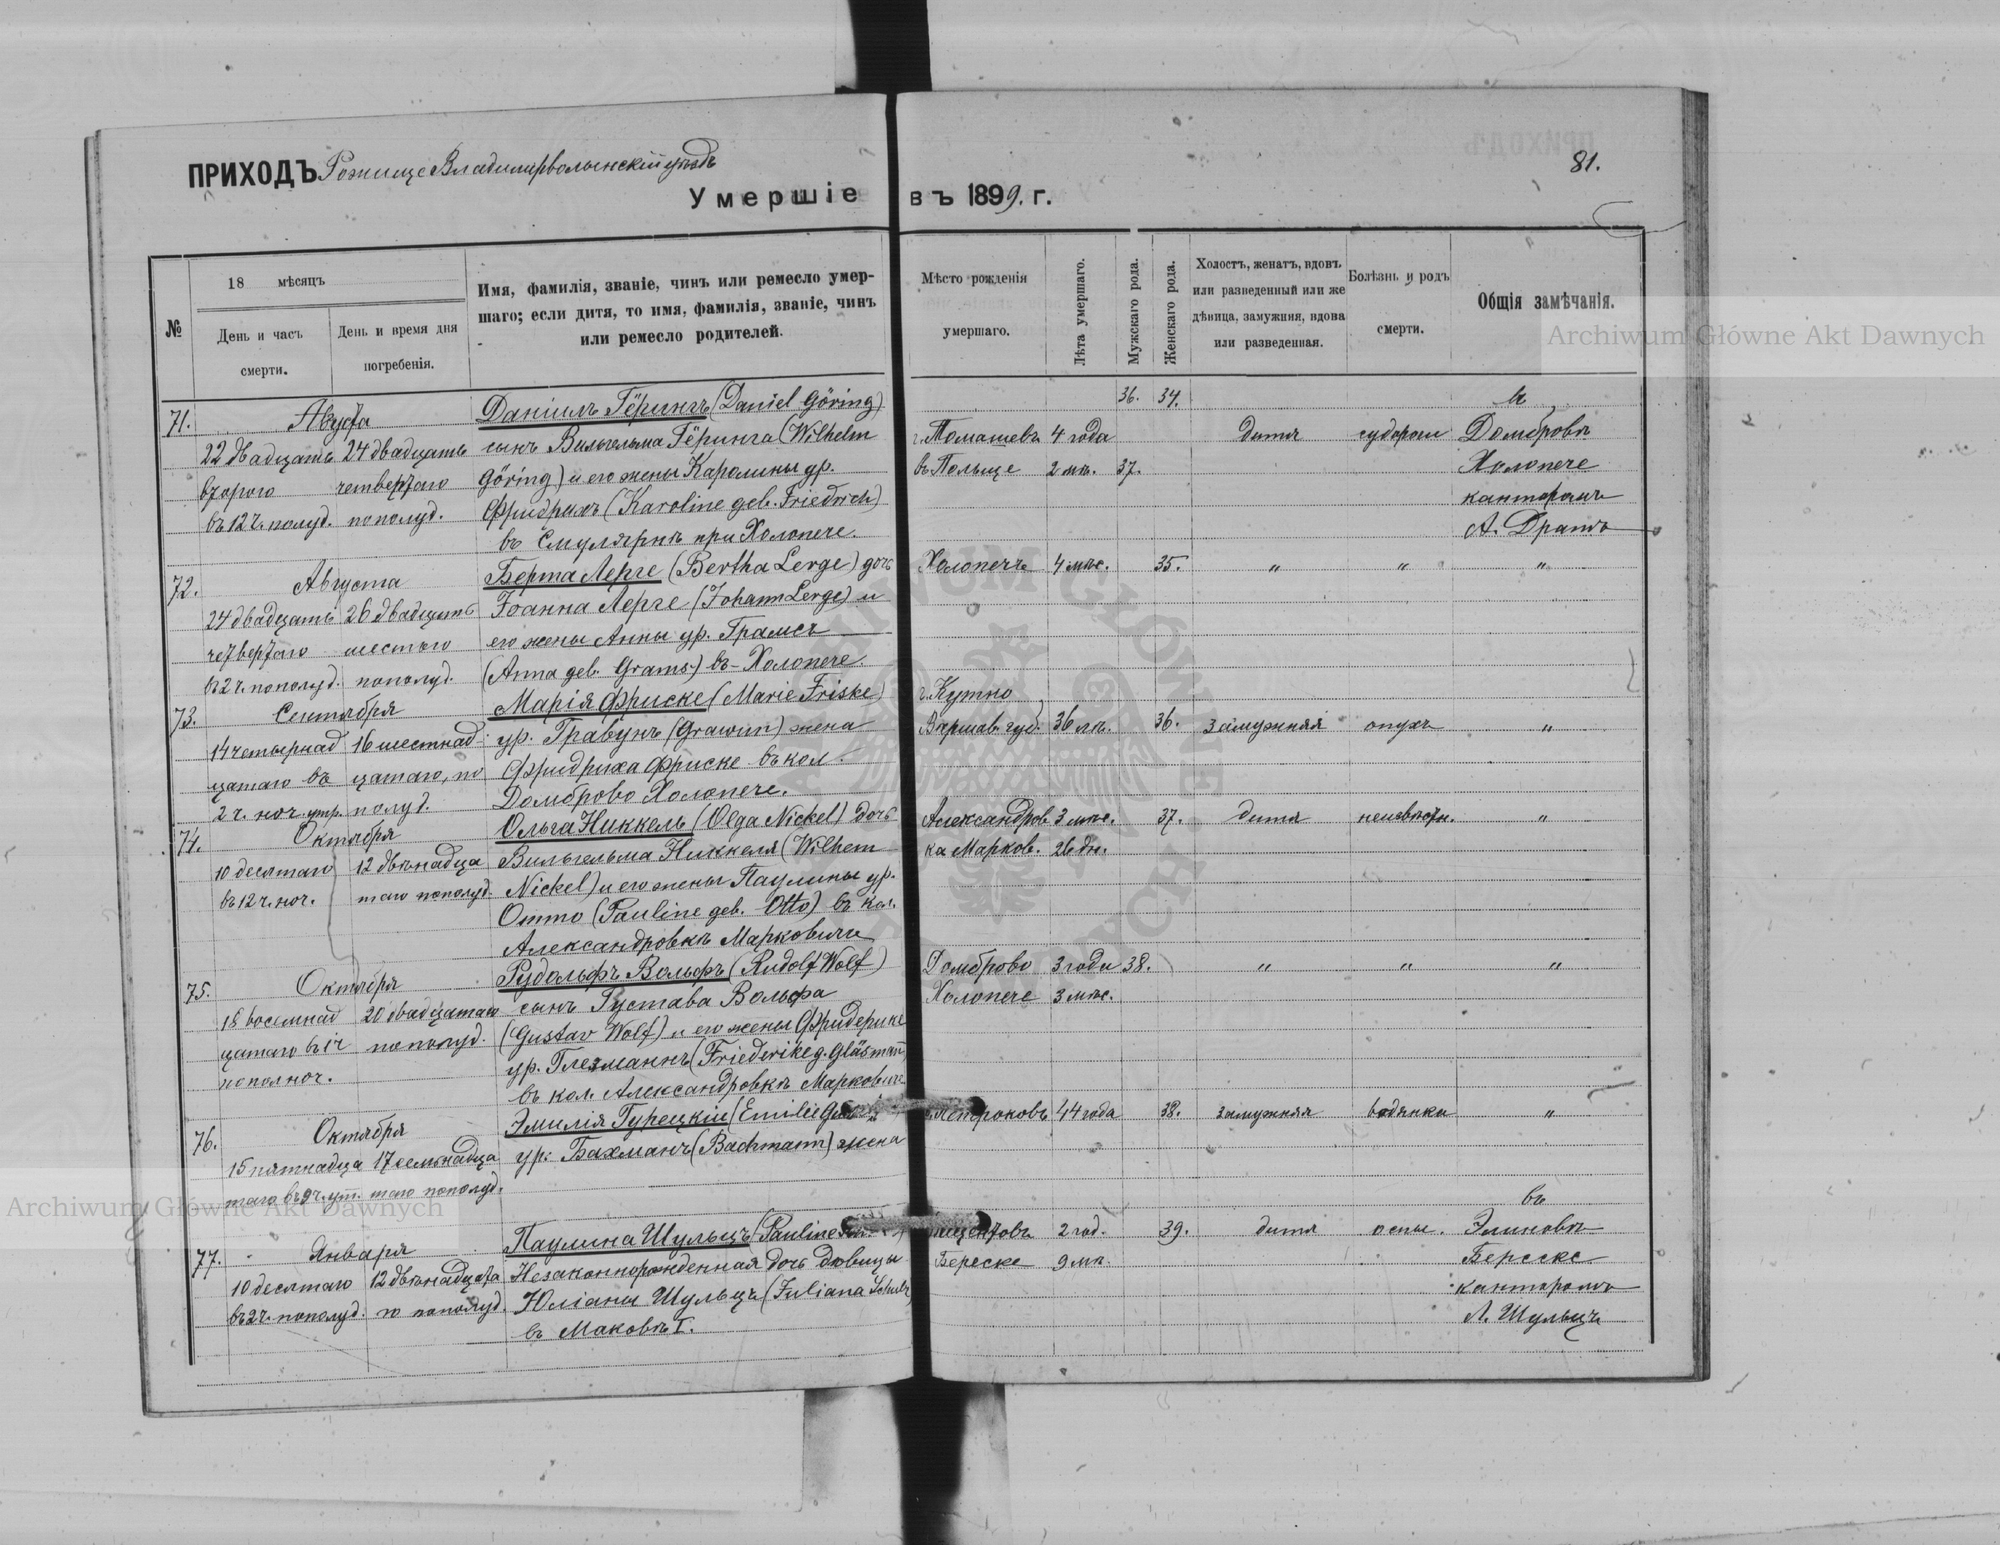 ПРИХОДЪ Рожище Владимирволынскій уѣздъ
81.
Умершіе въ 1899. г.
№
18 мѣсяцъ
День и часъ смерти.
День и время дня погребенія.
Имя, фамилія, званіе, чинъ или ремесло умер-
шаго; если дитя, то имя, фамилія, званіе, чинъ
или ремесло родителей.
Мѣсто рожденія
умершаго.
Лѣта умершаго.
Мужскаго рода.
Женскаго рода.
Холостъ, женатъ, вдовъ
или разведенный или же
дѣвица, замужняя, вдова
или разведенная.
Болѣзнь и родъ
смерти.
Общія замѣчанія.
Archiwum Główne Akt Dawnych
36. 34.
71. Августа Даніилъ Гёрингъ (Daniel Göring)
22 двадцать 24 двадцать сынъ Вильгельма Гёринга (Wilhelm г. Томашевъ 4 года дитя судороги Домбровѣ
второго четвертаго Göring) и его жены Каролины ур. въ Польще 2 мѣ. 37. Холопече
въ 12 ч. полуд. пополуд. Фридрихъ (Karoline geb. Friedrich) канторомъ
въ Смулярнѣ при Холопече. А. Драгъ
72. Августа Берта Лерге (Bertha Lerge) дочь Холопечѣ 4 мѣс. 35. " " "
24 двадцать 26 двадцать Іоанна Лерге (Johann Lerge) и
четвертаго шестаго его жены Анны ур. Грамсъ
въ 2 ч. пополуд. пополуд. (Anna geb. Grams) въ Холопече.
73. Сентября Марія Фриске (Marie Friske) г. Кутно
14 четырнад 16 шестнад ур. Гравунъ (Grawun) жена Варшав. губ. 36 лѣ. 36. замужняя опухъ "
цатаго въ цатаго, по Фридриха Фриске въ кол.
2 ч. ноч. утр. полуд. Домброво Холопече.
74. Октября Ольга Никкель (Olga Nickel) дочь Александров 3 мѣс. 37. дитя неизвѣстн. "
10 десятаго 12 двѣнадца Вильгельма Никкеля (Wilhem ка Марков. 26 дн.
въ 12 ч. ноч. таго пополуд. Nickel) и его жены Паулины ур.
Отто (Pauline geb. Otto) въ кол.
Александровкѣ Марковичи
75. Октября Рудольфъ Вольфъ (Rudolf Wolf) Домброво 3 года 38. " " "
18 восемнад 20 двадцатаго сынъ Густава Вольфа Холопече 3 мѣс.
цатаго въ 1 ч пополуд. (Gustav Wolf) и его жены Фридерике
пополноч. ур. Глезманнъ (Friederike g. Gläsmann)
въ кол. Александровкѣ Маркович
76. Октября Эмилія Гурецкіи (Emilie 44 года 38. замужняя водянки "
15 пятнадца 17 семьнадца ур. Бахманъ (Bachmann) жена
таго въ 9 ч. ут. таго пополуд.
Archiwum Główne Akt Dawnych
въ
77. Января Паулина Шульцъ (Pauline 2 год. 39. дитя оспы. Элиновкѣ
10 десятаго 12 двѣнадцата Незаконнорожденная дочь дѣвицы Береске 9 мѣ. Берескс
въ 2 ч. пополуд. го пополуд. Юліаны Шульцъ (Juliana Schulz) канторомъ
въ Маковѣ I. Л. Шульцъ